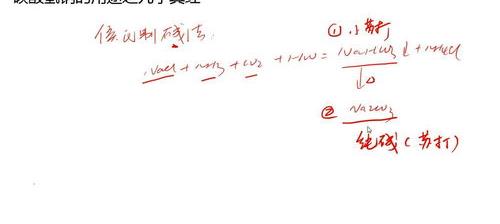 侯氏制碱法:
① 小苏打
NaCl + NH3 + CO2 + H2O = NaHCO3↓ + NH4Cl
↓△
② Na2CO3
纯碱(苏打)